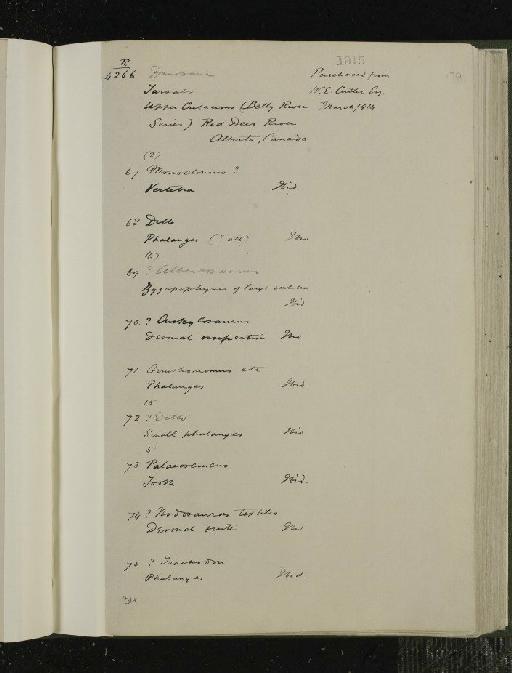 R 1915
4266 Purchased from 179
Tarsals W.E. Cutler Esq.
Upper Cretaceous (Belly River March 1914
Series) Red Deer River
Alberta, Canada
(2)
67 Monoclonius ?
Vertebra Ibid
68 Ditto
Phalanges Ibid
(2)
69 ?
Zygapophyses of large vertebra
Ibid
70 ? Ankylosaurus
Dermal Ibid
71 etc
Phalanges Ibid
15
72 ? Ditto
Small phalanges Ibid
5
73 Palaeoscincus
Tooth Ibid.
74 ? Nodosaurus textilis
Dermal scute Ibid
75 ? Troodon
Phalanges Ibid